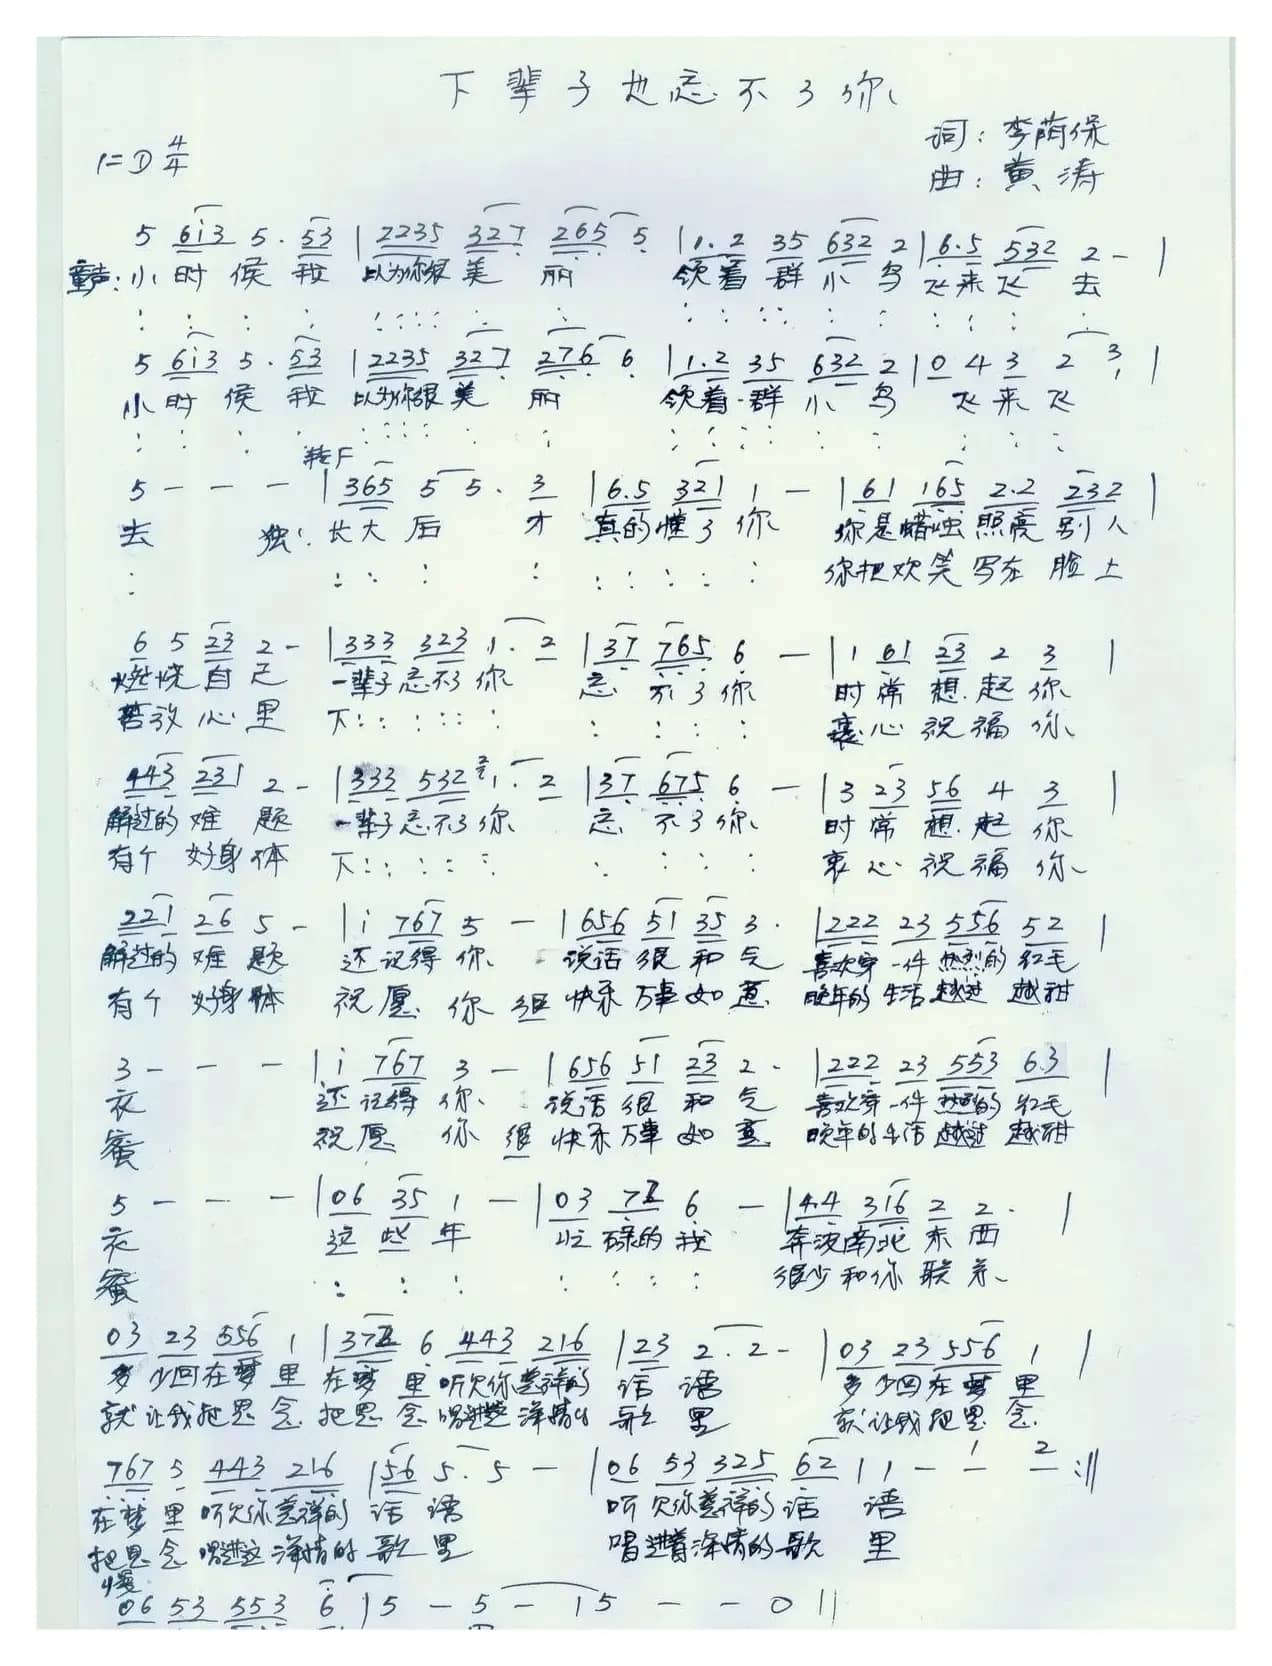 下辈子也忘不了你
词：李荫保
1=D 4/4
曲：黄涛
5 6i3 5. 53 | 2235 327 265 5 | 1.2 35 632 2 | 6.5 532 2 - |
童声：小时候我 以为你很美丽 领着群小鸟 飞来飞去
5 6i3 5. 53 | 2235 327 276 6 | 1.2 35 632 2 | 0 4 3 2 3 |
小时候我 以为你很美丽 领着一群小鸟 飞来飞
转F
5 - - - | 365 5 5. 3 | 6.5 321 1 - | 61 165 2.2 232 |
去 独：长大后才 真的懂了你 你是蜡烛照亮别人
你把欢笑写在脸上
6 5 23 2 - | 333 323 1. 2 | 37 765 6 - | 1 61 23 2 3 |
燃烧自己 一辈子忘不了你 忘不了你 时常想起你
苦放心里 下 衷心祝福你
443 231 2 - | 333 532 1. 2 | 37 675 6 - | 3 23 56 4 3 |
解过的难题 一辈子忘不了你 忘不了你 时常想起你
有个好身体 下 衷心祝福你
221 26 5 - | i 767 5 - | 656 51 35 3. | 222 23 556 52 |
解过的难题 还记得你 说话很和气 喜欢穿一件热烈的红毛
有个好身体 祝愿你很快乐万事如意 晚年的生活越过越甜
3 - - - | i 767 3 - | 656 51 23 2. | 222 23 553 6.3 |
衣 还记得你 说话很和气 喜欢穿一件热烈的红毛
蜜 祝愿你很快乐万事如意 晚年的生活越过越甜
5 - - - | 06 35 1 - | 03 77 6 - | 4.4 316 2 2. |
衣 这些年 忙碌的我 奔波南北东西
蜜 很少和你联系
03 23 556 1 | 377 6 443 216 | 23 2. 2 - | 03 23 556 1 |
多少回在梦里 在梦里听见你慈祥的话语 多少回在梦里
就让我把思念 把思念唱进这深情的歌里 就让我把思念
767 5 443 216 | 56 5. 5 - | 06 53 325 62 | 1 - 1 2 :||
在梦里听见你慈祥的话语 听见你慈祥的话语
把思念唱进这深情的歌里 唱进着深情的歌里
慢
06 53 553 6 | 5 - 5 - | 5 - - 0 ||